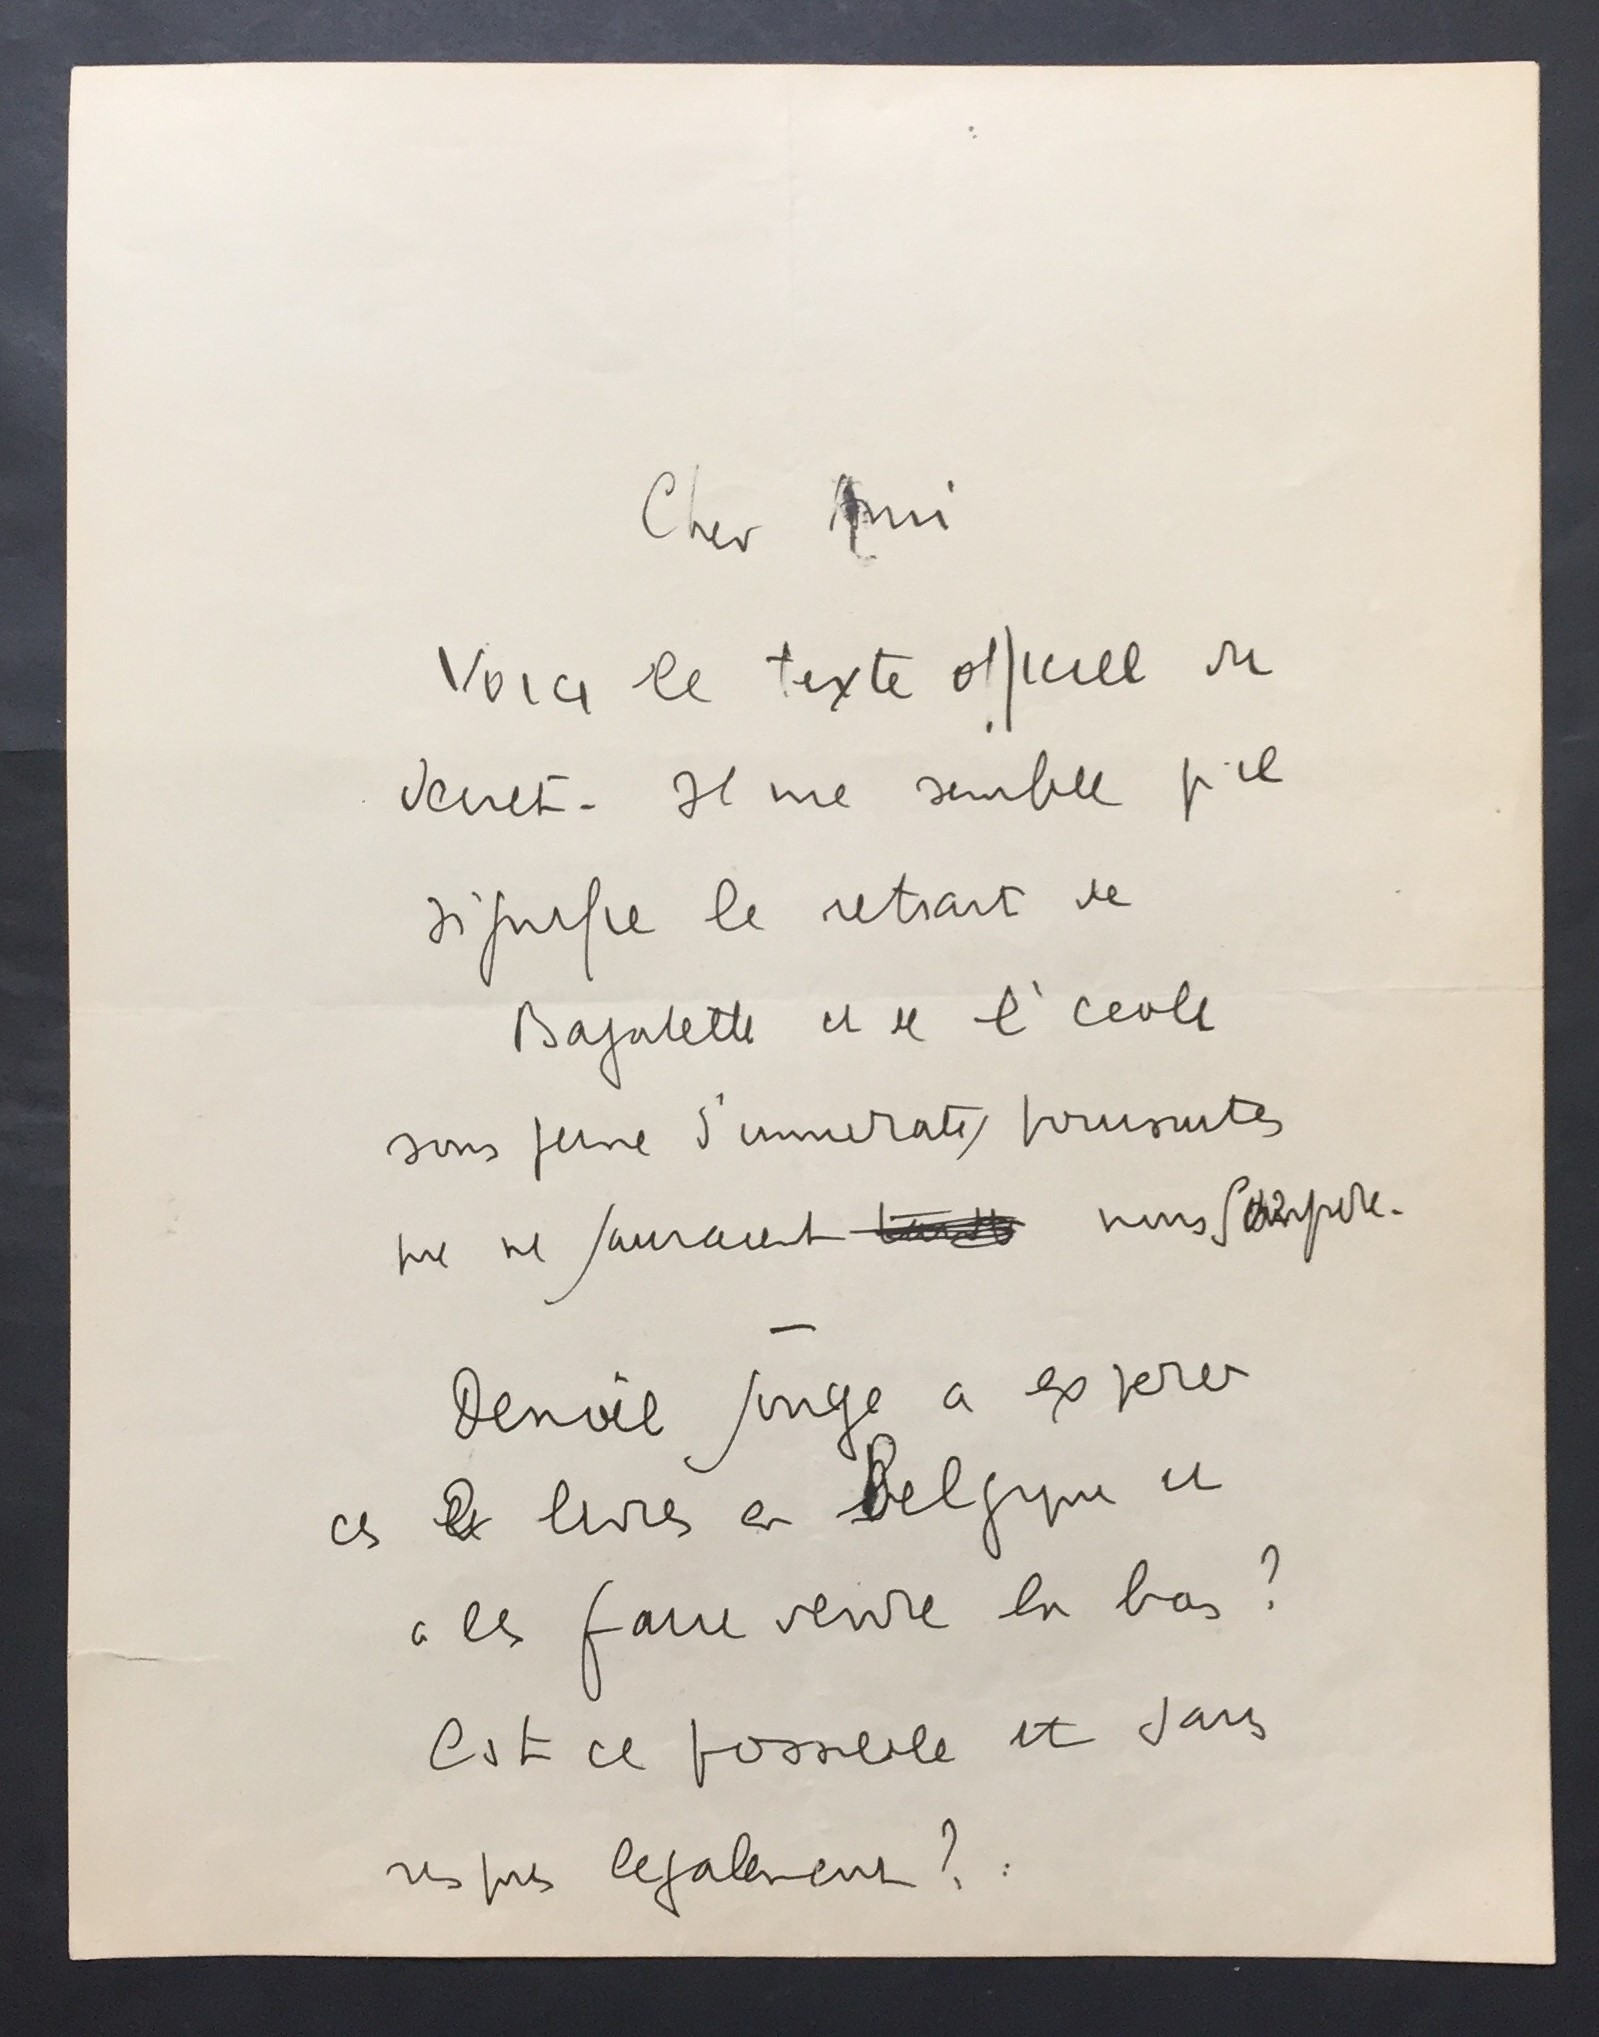 Cher Ami
Voici le texte officiel du
decret. Il me semble qu'il
signifie le retrait de
Bagatelle et de l'ecole
sous peine d'immediates poursuites
que ne sauraient nous
Denoël songe a expedier
ces livres en Belgique et
a les faire vendre la bas ?
Est ce possible et sans
risques legalement ?